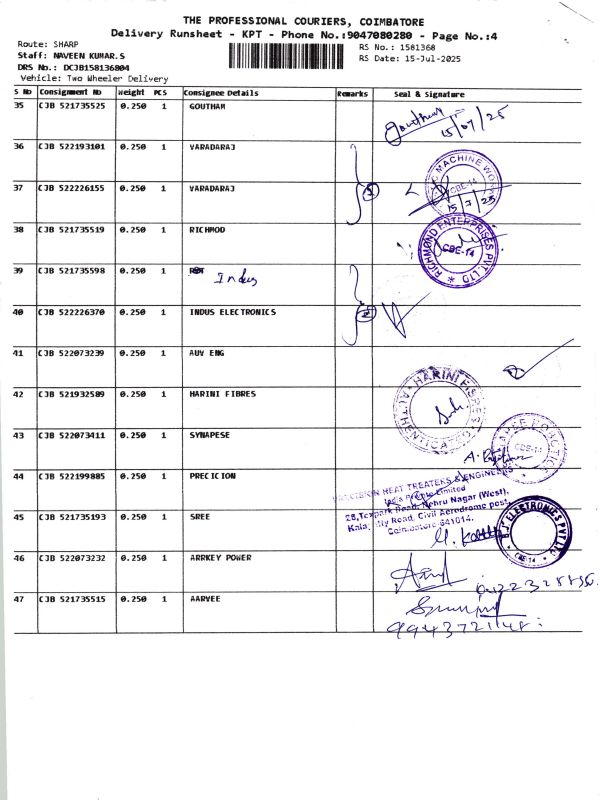 THE PROFESSIONAL COURIERS, COIMBATORE
Delivery Runsheet - KPT - Phone No.:9047080280 - Page No.:4
Route: SHARP
RS No.: 1581368
Staff: NAVEEN KUMAR.S
RS Date: 15-Jul-2025
DRS No.: DCJB158136804
Vehicle: Two Wheeler Delivery
S No Consignment No Weight PCS Consignee Details Remarks Seal & Signature
35 CJB 521735525 0.250 1 GOUTHAM
Goutham
15/07/25
36 CJB 522193101 0.250 1 VARADARAJ
MACHINE WORKS
CBE-14
37 CJB 522226155 0.250 1 VARADARAJ
15/7/25
38 CJB 521735519 0.250 1 RICHMOD
RICHMOND ENTERPRISES PVT. LTD
CBE-14
39 CJB 521735598 0.250 1 Indus
40 CJB 522226370 0.250 1 INDUS ELECTRONICS
41 CJB 522073239 0.250 1 AUV ENG
42 CJB 521932589 0.250 1 HARINI FIBRES
HARINI FIBRES
AUTHENTICATED
43 CJB 522073411 0.250 1 SYNAPESE
CBE-14
44 CJB 522199885 0.250 1 PRECICION
PRECISION HEAT TREATERS & ENGINEERS
India Private Limited
Nehru Nagar (West),
45 CJB 521735193 0.250 1 SREE
Road, Civil Aerodrome post,
Coimbatore-641014.
ELECTRONICS PVT LTD
CBE-14
46 CJB 522073232 0.250 1 ARRKEY POWER
47 CJB 521735515 0.250 1 AARVEE
9943721148